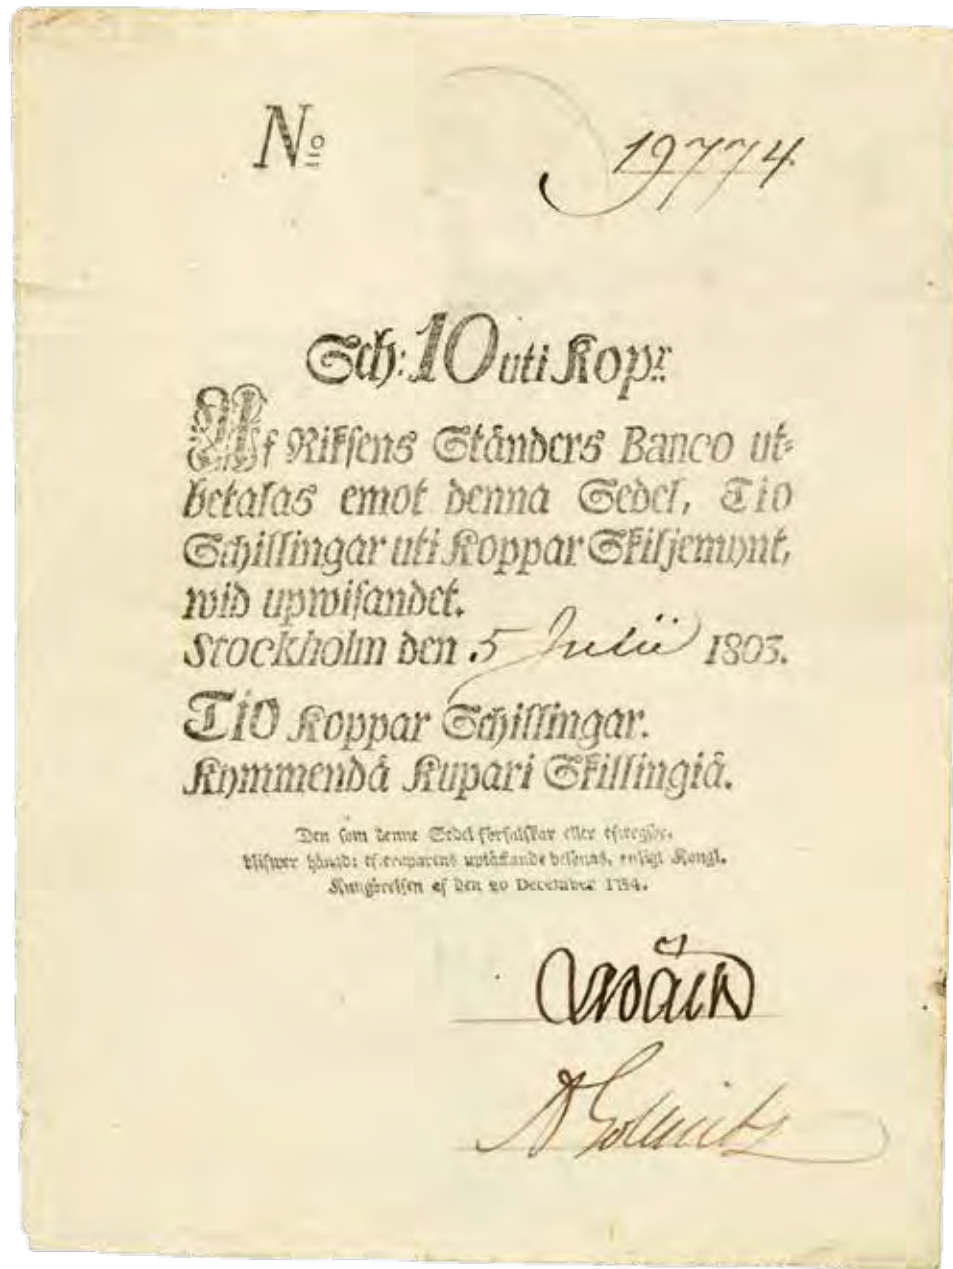 No 19774.
Sch: 10 uti Kopr.
Af Riksens Ständers Banco ut-
betalas emot denna Sedel, Tio
Schillingar uti Koppar Skiljemynt,
wid upwisandet.
Stockholm den 5 Julii 1803.
Tio Koppar Schillingar.
Kymmendä Kupari Skillingiä.
Den som denne Sedel förfalskar eller eftergör,
blifwer hängd: uptäckande belönas, enligt Kongl.
Kungörelsen af den 20 December 1754.